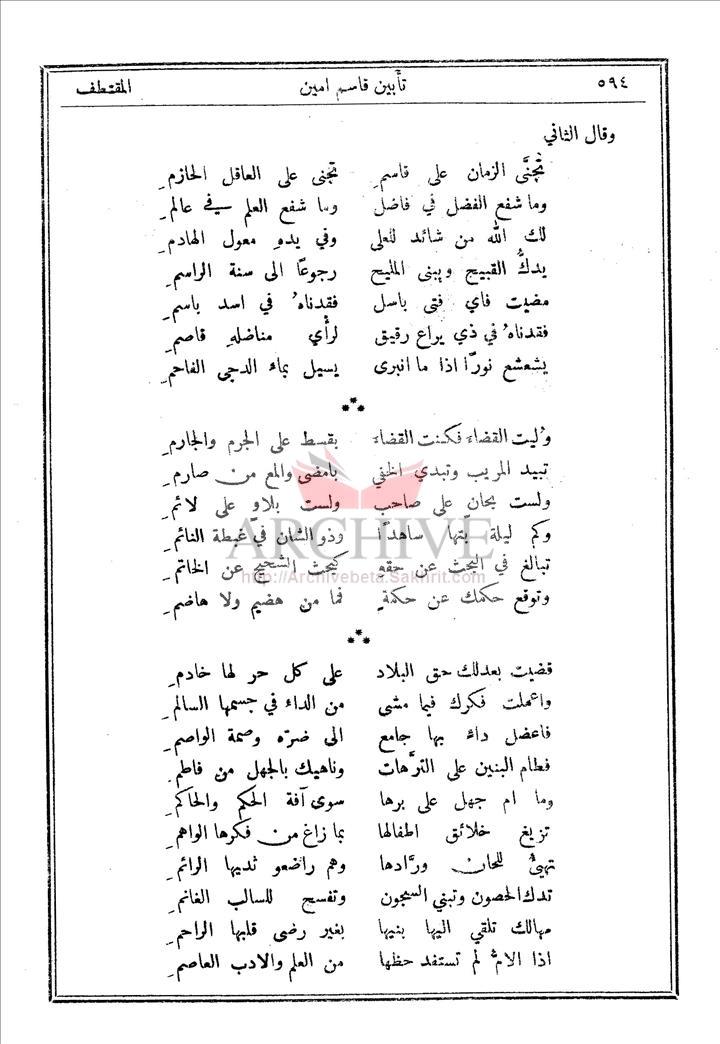 ٥٩٤ تأبين قاسم امين المقتطف
وقال الثاني
تجنَّى الزمان على قاسمٍ تجنى على العاقل الحازمِ
وما شفع الفضل في فاضل وما شفع العلم في عالمِ
لك الله من شائد للعلى وفي يدهِ معول الهادمِ
يدكُّ القبيح ويبنى المليح رجوعًا الى سنة الراسمِ
مضيت فاي فتى باسل فقدناهُ في اسد باسمِ
فقدناهُ في ذي يراع رقيق لرأي مناضلهِ قاصمِ
يشعشع نورًا اذا ما انبرى يسيل بماء الدجى الفاحمِ
***
وُليت القضاء فكنت القضاء بقسط على الجرم والجارمِ
تبيد المريب وتبدي الخفي بامضى والمع من صارمِ
ولست بحان على صاحب ولست بلاوٍ على لائمِ
وكم ليلة بتّها ساهدًا وذو الشان في غبطة النائمِ
تبالغ في البحث عن حقهِ كبحث الشحيح عن الخاتمِ
وتوقع حكمك عن حكمةٍ فما من هضيم ولا هاضمِ
***
قضيت بعدلك حق البلاد على كل حر لها خادمِ
واعملت فكرك فيما مشى من الداء في جسمها السالمِ
فاعضل داءٍ بها جامع الى ضرّه وصمة الواصمِ
فطام البنين على الترَّهات وناهيك بالجهل من فاطمِ
وما ام جهل على برها سوى آفة الحكم والحاكمِ
تزيغ خلائق اطفالها بما زاغ من فكرها الواهمِ
تهيئُ للحان ورَّادها وهم راضعو ثديها الرائمِ
تدك الحصون وتبني السجون وتفسح للسالب الغانمِ
مهالك تلقي اليها بنيها بغير رضى قلبها الراحمِ
اذا الامُّ لم تستفد حظها من العلم والادب العاصمِ
ARCHIVE
http://Archivebeta.Sakhrit.com